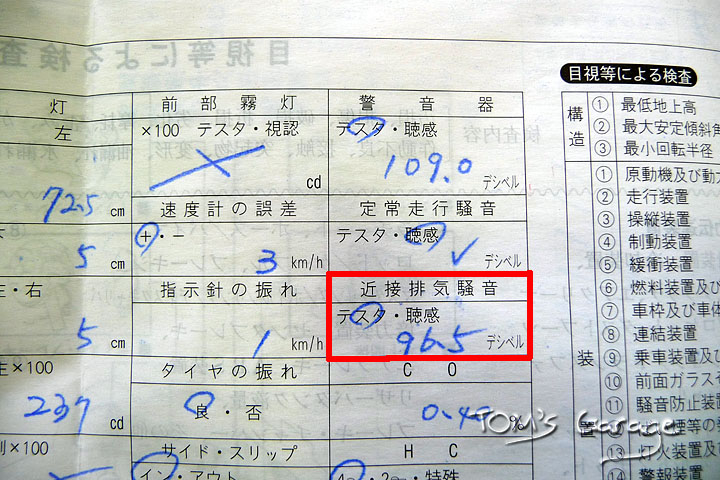 目視等による検査
灯
左
72.5 cm
5 cm
左・右
5 cm
×100
237 cd
×100
前部霧灯
×100 テスタ・視認
cd
速度計の誤差
+・−
3 km/h
指示針の振れ
1 km/h
タイヤの振れ
良・否
サイド・スリップ
イン・アウト
警音器
テスタ・聴感
109.0 デシベル
定常走行騒音
テスタ・聴感
✓ デシベル
近接排気騒音
テスタ・聴感
96.5 デシベル
CO
0.40 %
HC
・特殊
目視等による検査
構造
① 最低地上高
② 最大安定傾斜
③ 最小回転半径
装置
① 原動機及び動
② 走行装置
③ 操縦装置
④ 制動装置
⑤ 緩衝装置
⑥ 燃料装置及び
⑦ 車枠及び車体
⑧ 連結装置
⑨ 乗車装置及び
⑩ 前面ガラス
⑪ 騒音防止装置
煙等の
⑬ 灯火装置及び
⑭ 警報装置
TOM's Garage